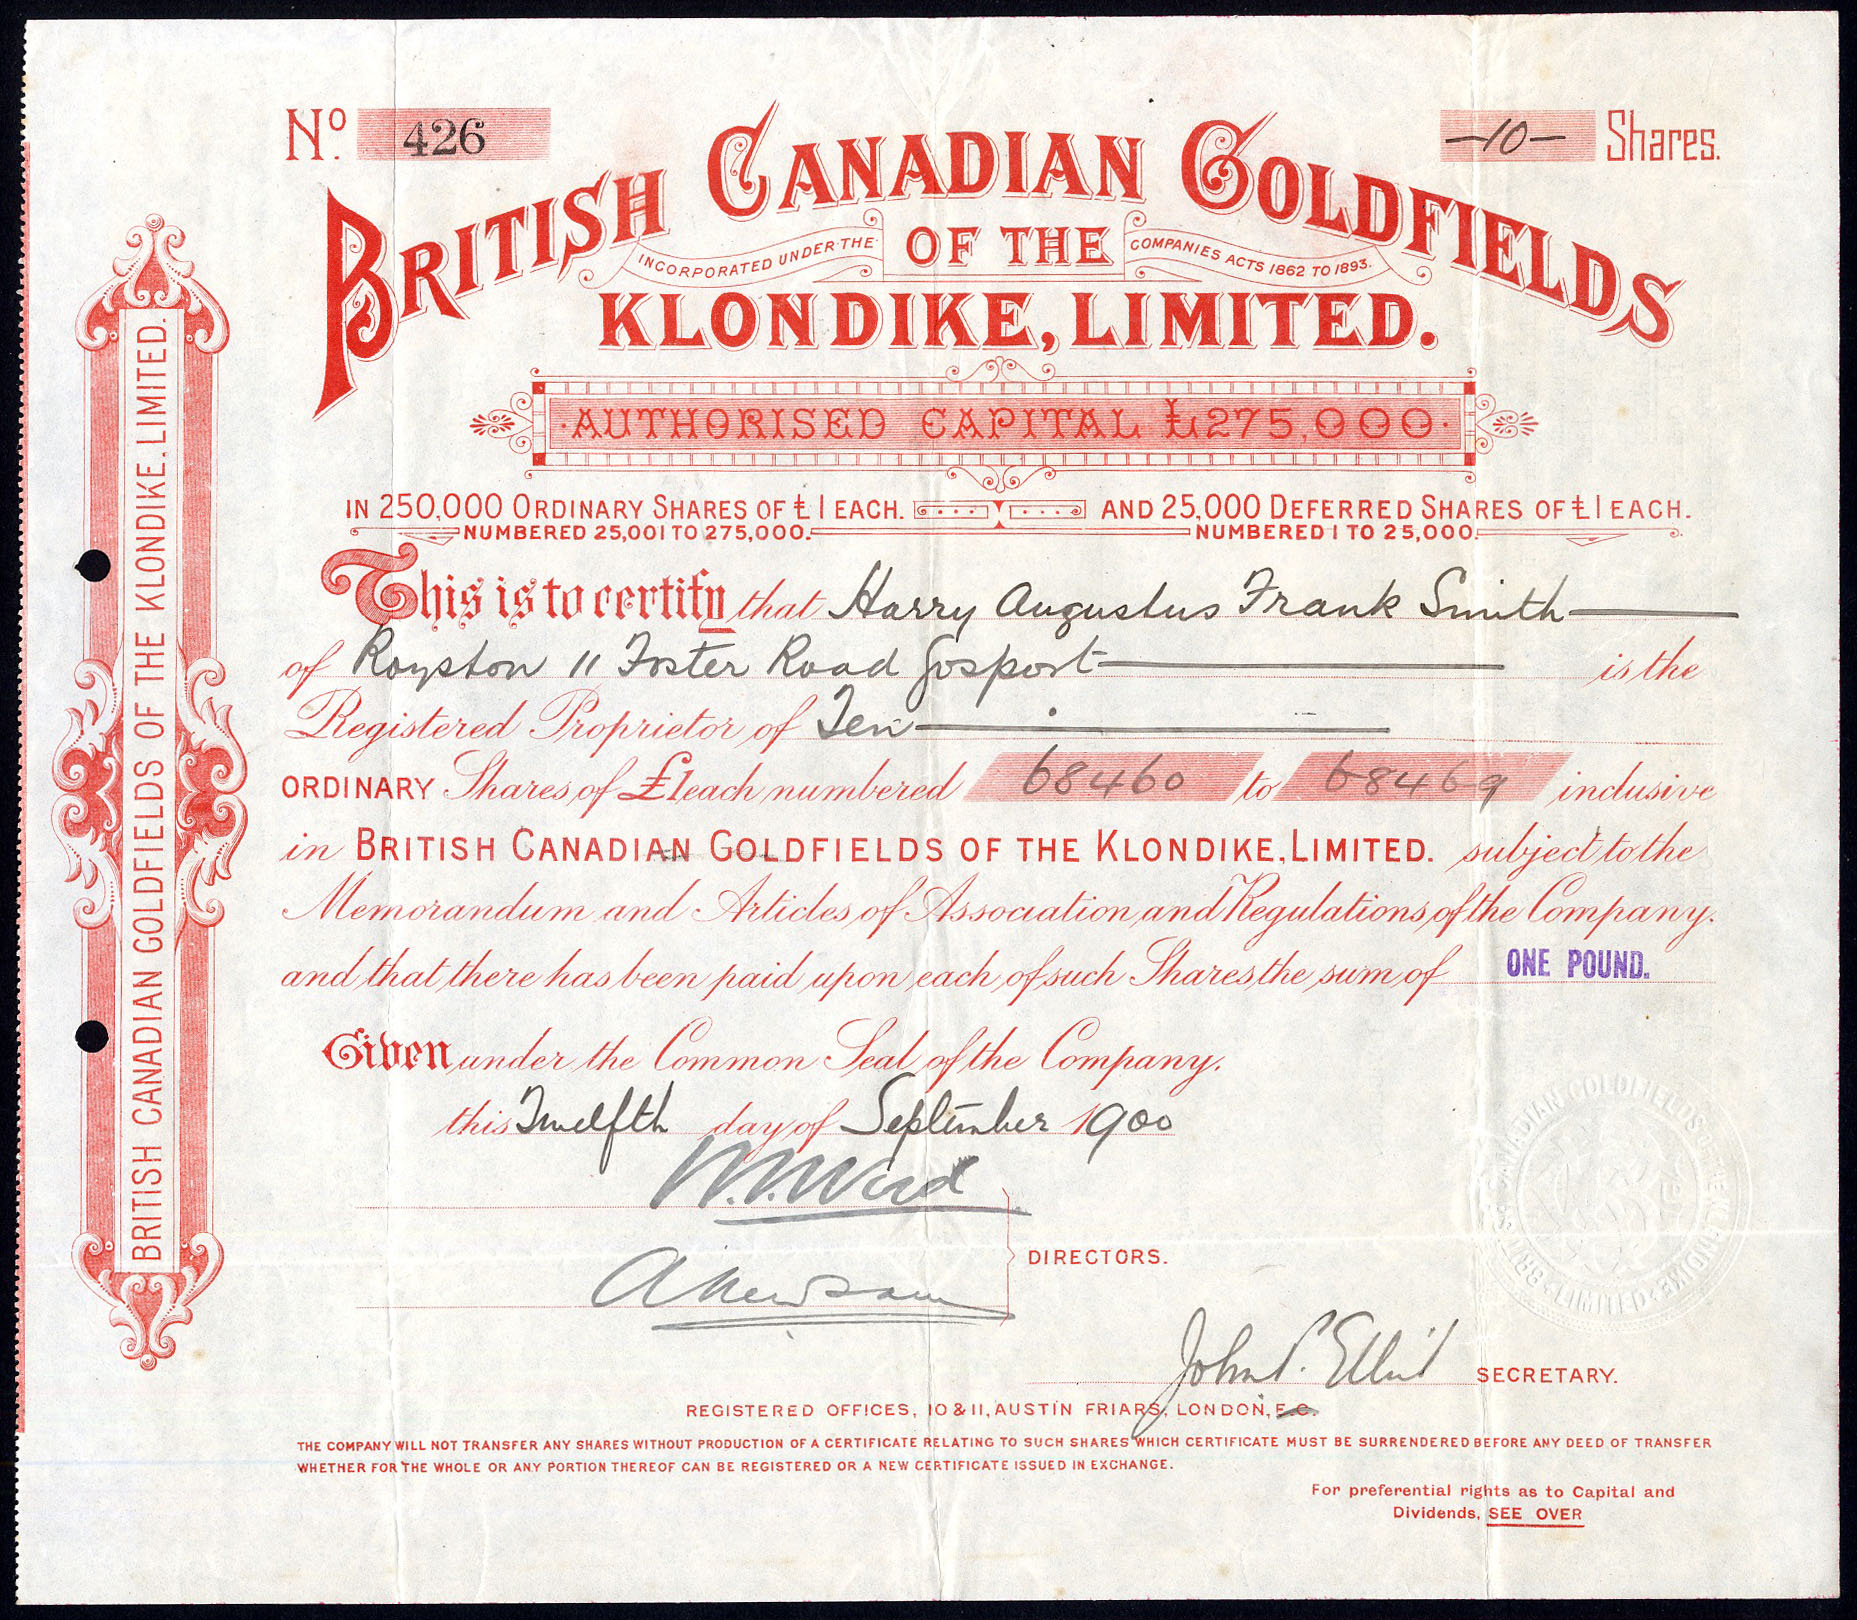 No. 426
-10- Shares.
BRITISH CANADIAN GOLDFIELDS
INCORPORATED UNDER THE OF THE COMPANIES ACTS 1862 TO 1893.
KLONDIKE, LIMITED.
·AUTHORISED CAPITAL £275,000·
IN 250,000 ORDINARY SHARES OF £1 EACH. AND 25,000 DEFERRED SHARES OF £1 EACH.
NUMBERED 25,001 TO 275,000. NUMBERED 1 TO 25,000.
This is to certify that Harry Augustus Frank Smith
of Royston 11 Foster Road Gosport is the
Registered Proprietor of Ten
ORDINARY Shares of £1 each numbered 68460 to 68469 inclusive
in BRITISH CANADIAN GOLDFIELDS OF THE KLONDIKE, LIMITED. subject to the
Memorandum and Articles of Association and Regulations of the Company.
and that there has been paid upon each of such Shares the sum of ONE POUND.
Given under the Common Seal of the Company.
this Twelfth day of September 1900
W.W.Ward
A Newsam
DIRECTORS.
John P. Elliot SECRETARY.
REGISTERED OFFICES, 10 & 11, AUSTIN FRIARS, LONDON, E.C.
THE COMPANY WILL NOT TRANSFER ANY SHARES WITHOUT PRODUCTION OF A CERTIFICATE RELATING TO SUCH SHARES WHICH CERTIFICATE MUST BE SURRENDERED BEFORE ANY DEED OF TRANSFER
WHETHER FOR THE WHOLE OR ANY PORTION THEREOF CAN BE REGISTERED OR A NEW CERTIFICATE ISSUED IN EXCHANGE.
For preferential rights as to Capital and
Dividends, SEE OVER
BRITISH CANADIAN GOLDFIELDS OF THE KLONDIKE, LIMITED.
BRITISH CANADIAN GOLDFIELDS OF THE KLONDIKE LIMITED